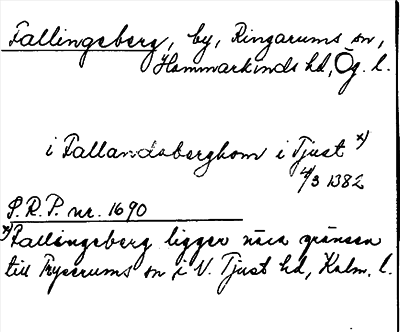 Fallingeberg, by, Ringarums sn,
Hammarkinds hd, Ög. l.
i Fallandaberghom i Tjust x)
4/3 1382
S.R.P. nr. 1690
x) Fallingeberg ligger nära gränsen
till Tryserums sn i N. Tjust hd, Kalm. l.